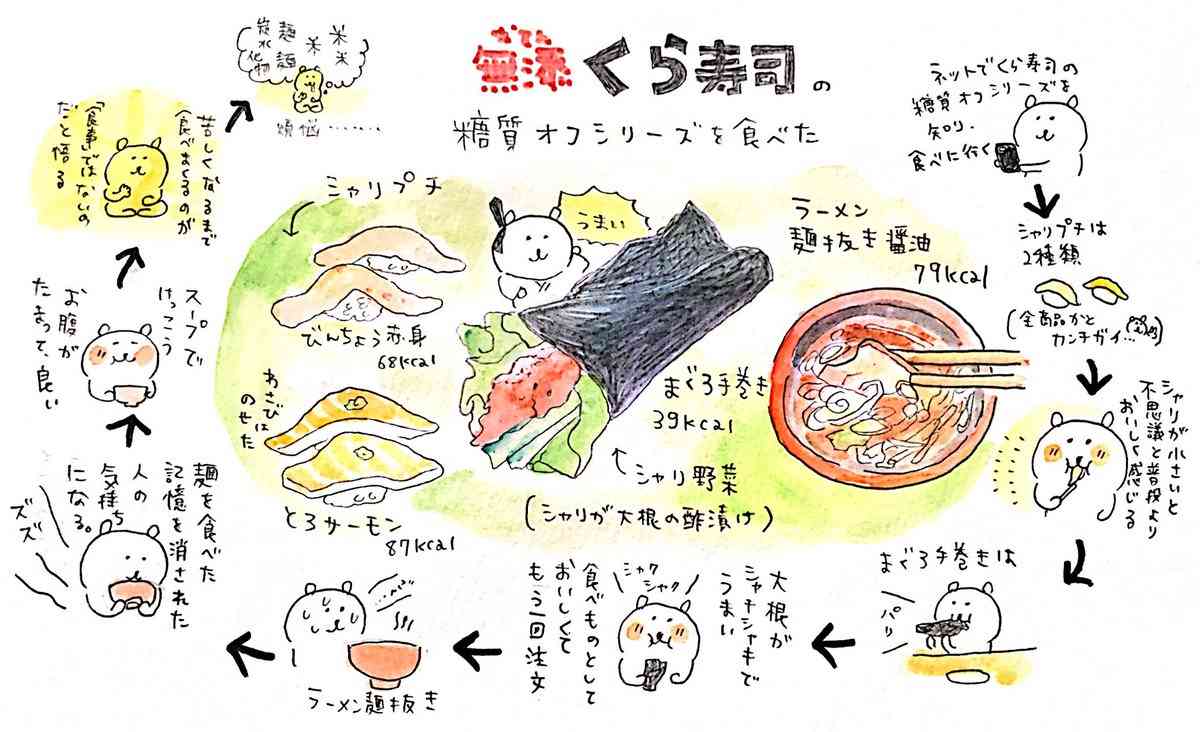 むてん
無添くら寿司の
糖質オフシリーズを食べた
ネットでくら寿司の
糖質オフシリーズを
知り、
食べに行く
シャリプチは
2種類
(全商品かと
カンチガイ…)
シャリが小さいと
不思議と普段より
おいしく感じる
まぐろ手巻きは
パリ
大根が
シャキシャキで
うまい
シャク
シャク
食べものとして
おいしくて
もう一回注文
ラーメン麺抜き
麺を食べた
記憶を消された
人の
気持ち
になる。
ズズ
スープで
けっこう
お腹が
たまって、良い
苦しくなるまで
食べまくるのが
「食事」ではないの
だと悟る
炭水化物
麺
麺
米
米
米
煩悩………
シャリプチ
びんちょう赤身
68kcal
わさびは
のせた
とろサーモン
87kcal
うまい
まぐろ手巻き
39kcal
シャリ野菜
(シャリが大根の酢漬け)
ラーメン
麺抜き醤油
79kcal